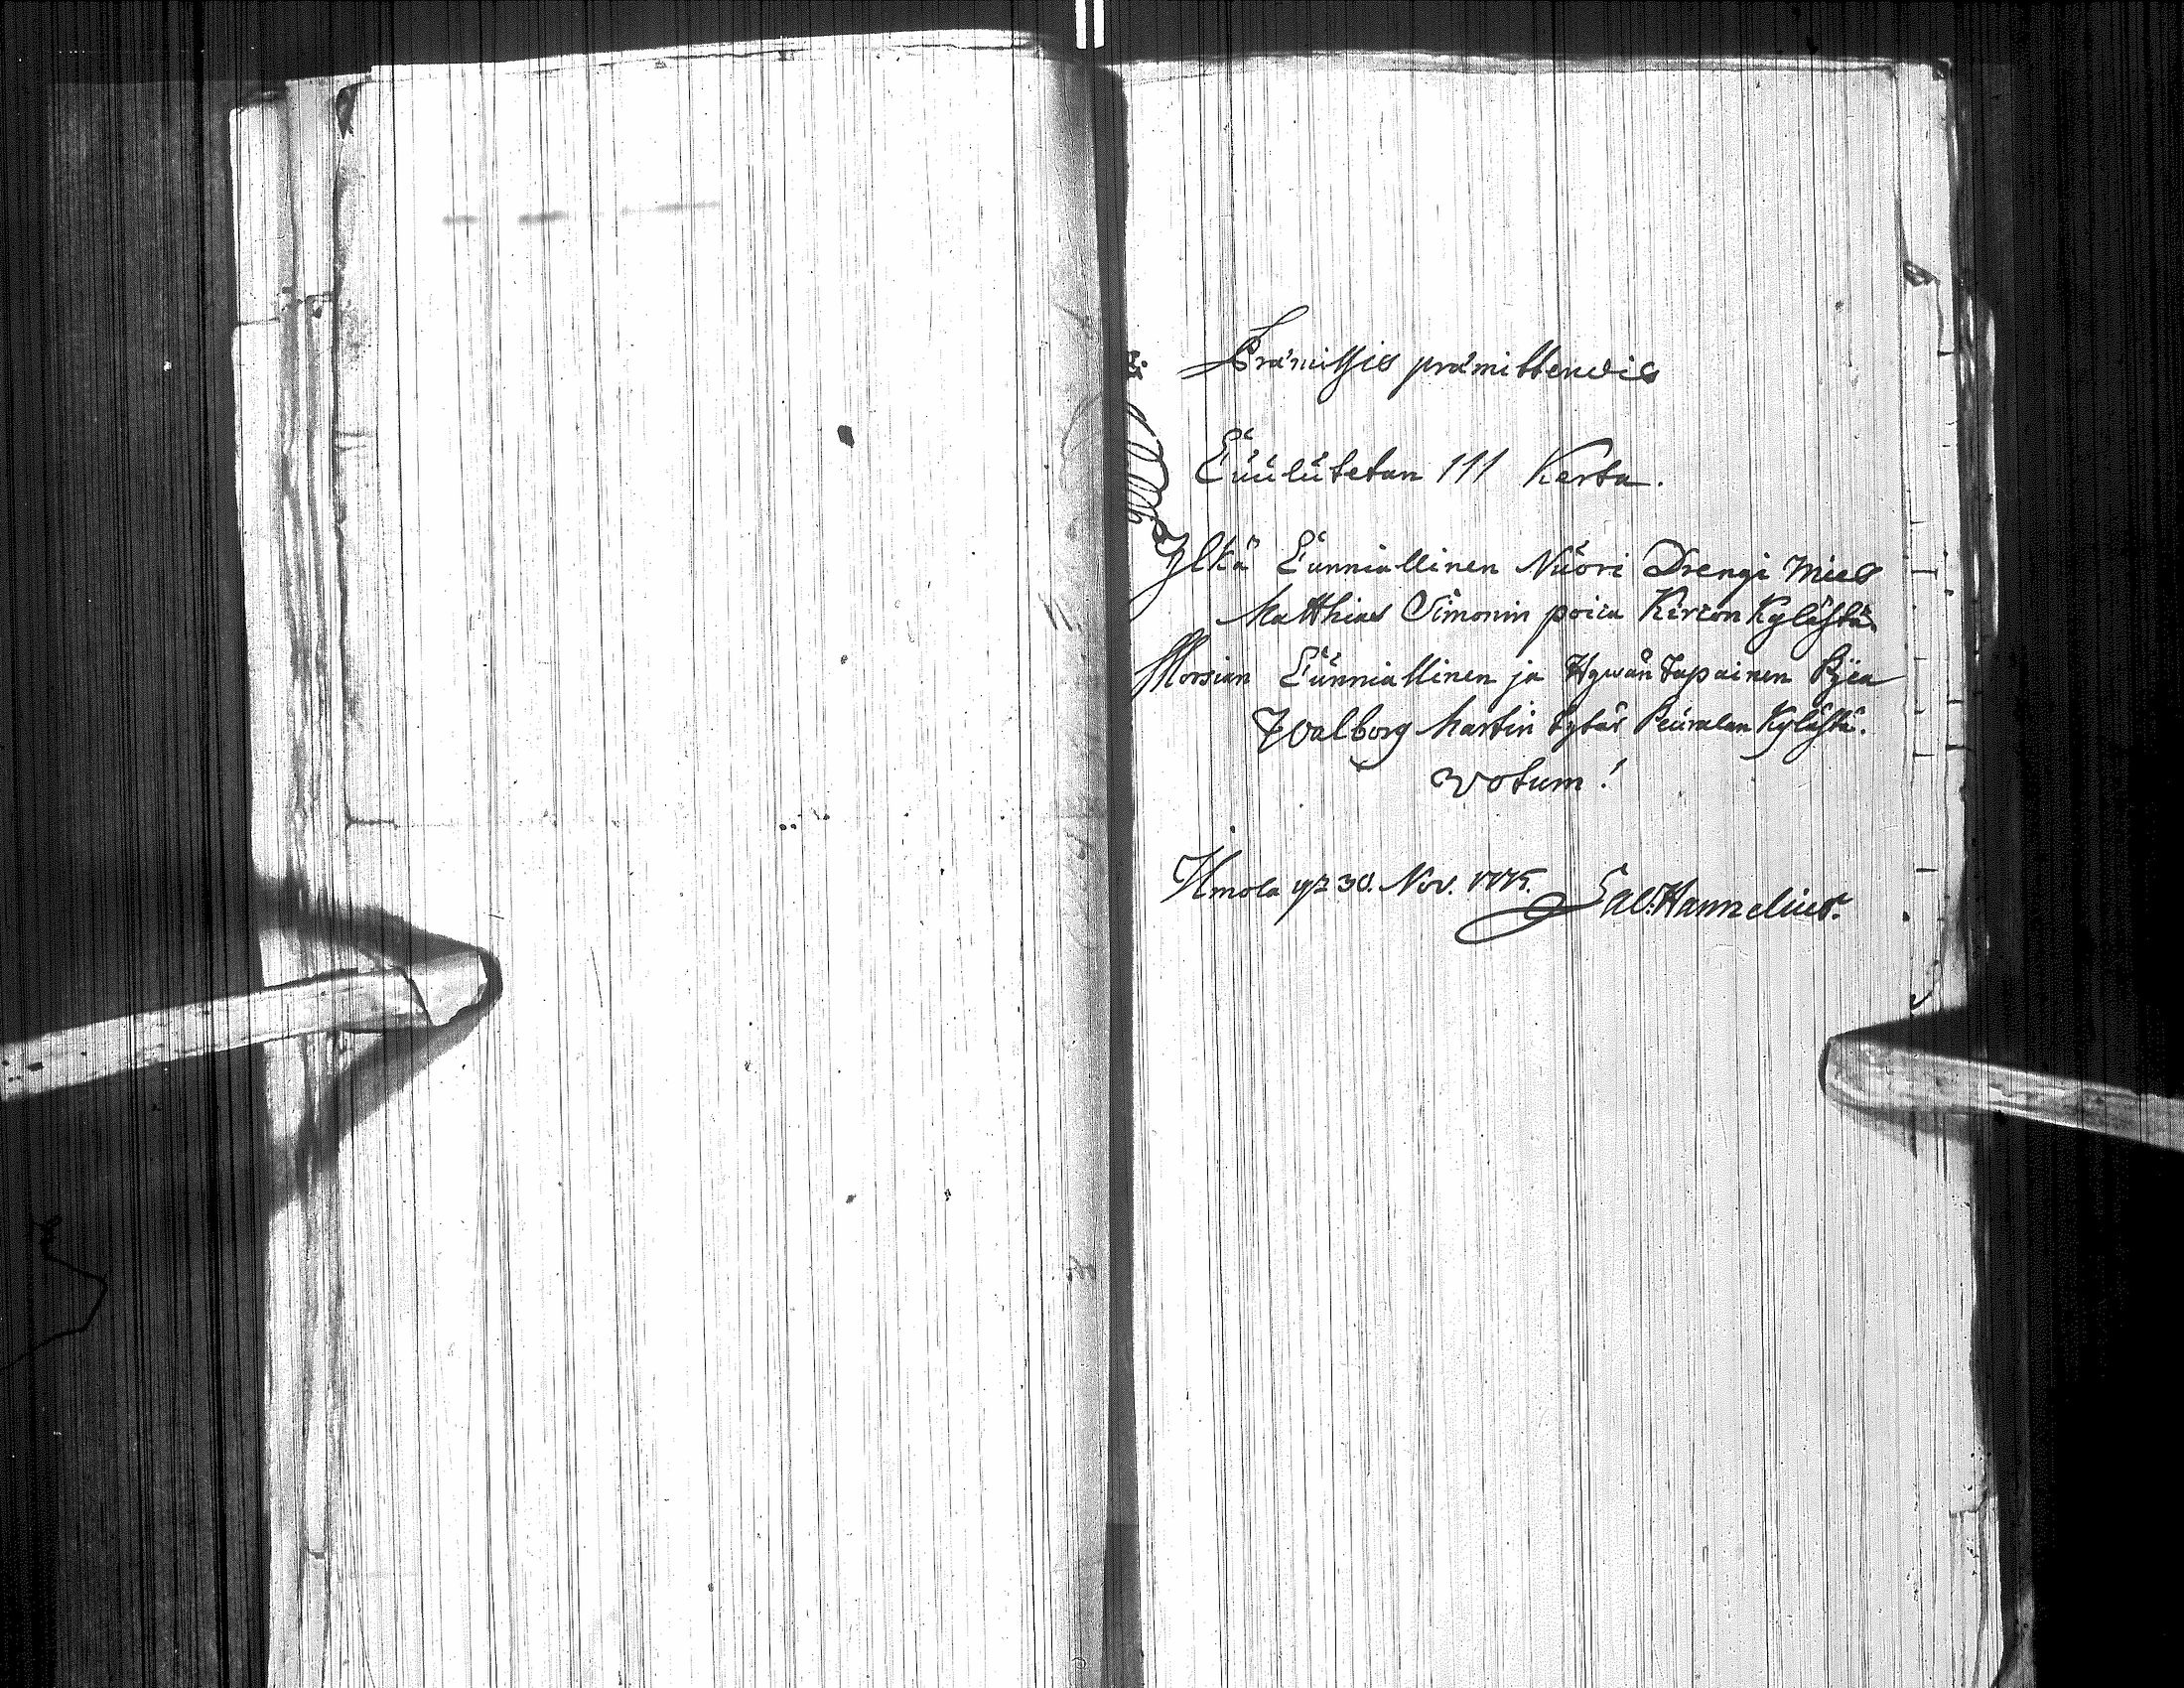 Præmissis præmittendis
Cuulutetan 111 Kerta.
Ylkä Cunniallinen Nuori Drengi Mies
Matthias Simonin poica Kircon Kylästä.
Morsian Cunniallinen ja Hywän Tapainen Pijca
Walborg Martin tytär Peuralan Kylästä.
Votum!
Ilmola 30. Nov. 1775. Sal: Hannelius.